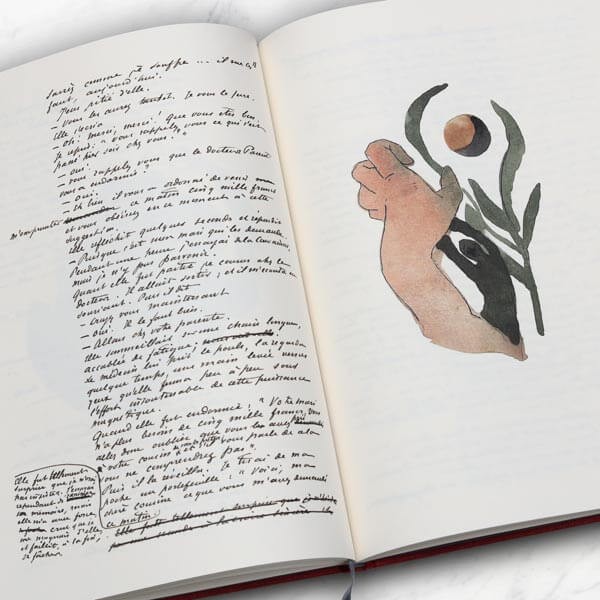 serrés comme je souffre ... il me les
faut, aujourd'hui.
J'eus pitié d'elle.
– vous les aurez tantôt. Je vous le jure.
Elle s'écria
– oh! merci, merci! que vous êtes bon.
Je repris: "vous rappelez-vous ce qui s'est
passé hier soir chez vous?"
– oui.
– vous rappelez-vous que le docteur Parent
vous a endormie?
– oui.
– Eh bien il vous a ordonné de venir
m'emprunter ce matin cinq mille francs
et vous obéissez en ce moment à cette
suggestion.
Elle réfléchit quelques secondes et répondit
– Puisque c'est mon mari qui les demande.
Pendant une heure j'essayai de la convaincre,
mais je n'y pus parvenir.
Quand elle fut partie je courus chez le
docteur. Il allait sortir; et il m'écouta en
souriant. Puis il dit
– croyez-vous maintenant
– oui. Il le faut bien.
– Allons chez votre parente.
Elle sommeillait sur une chaise longue,
accablée de fatigue,
Le médecin lui prit le pouls, la regarda
quelque temps, une main levée vers ses
yeux qu'elle ferma peu à peu sous
l'effort insoutenable de cette puissance
magnétique.
Quand elle fut endormie: "Votre mari
n'a plus besoin de cinq mille francs, vous
allez donc oublier que vous les avez
à votre cousin et s'il vous parle de cela
vous ne comprendrez pas."
Puis il la réveilla. Je tirai de ma
poche un portefeuille: "Voici, ma
chère cousine ce que vous m'avez demandé
ce matin."
Elle fut tellement surprise que
Elle fut tellement
surprise que je n'osai
pas insister. J'essayai
cependant de ranimer
sa mémoire, mais
elle nia avec force,
crut que je
me moquais d'elle,
et faillit, à la fin,
se fâcher.